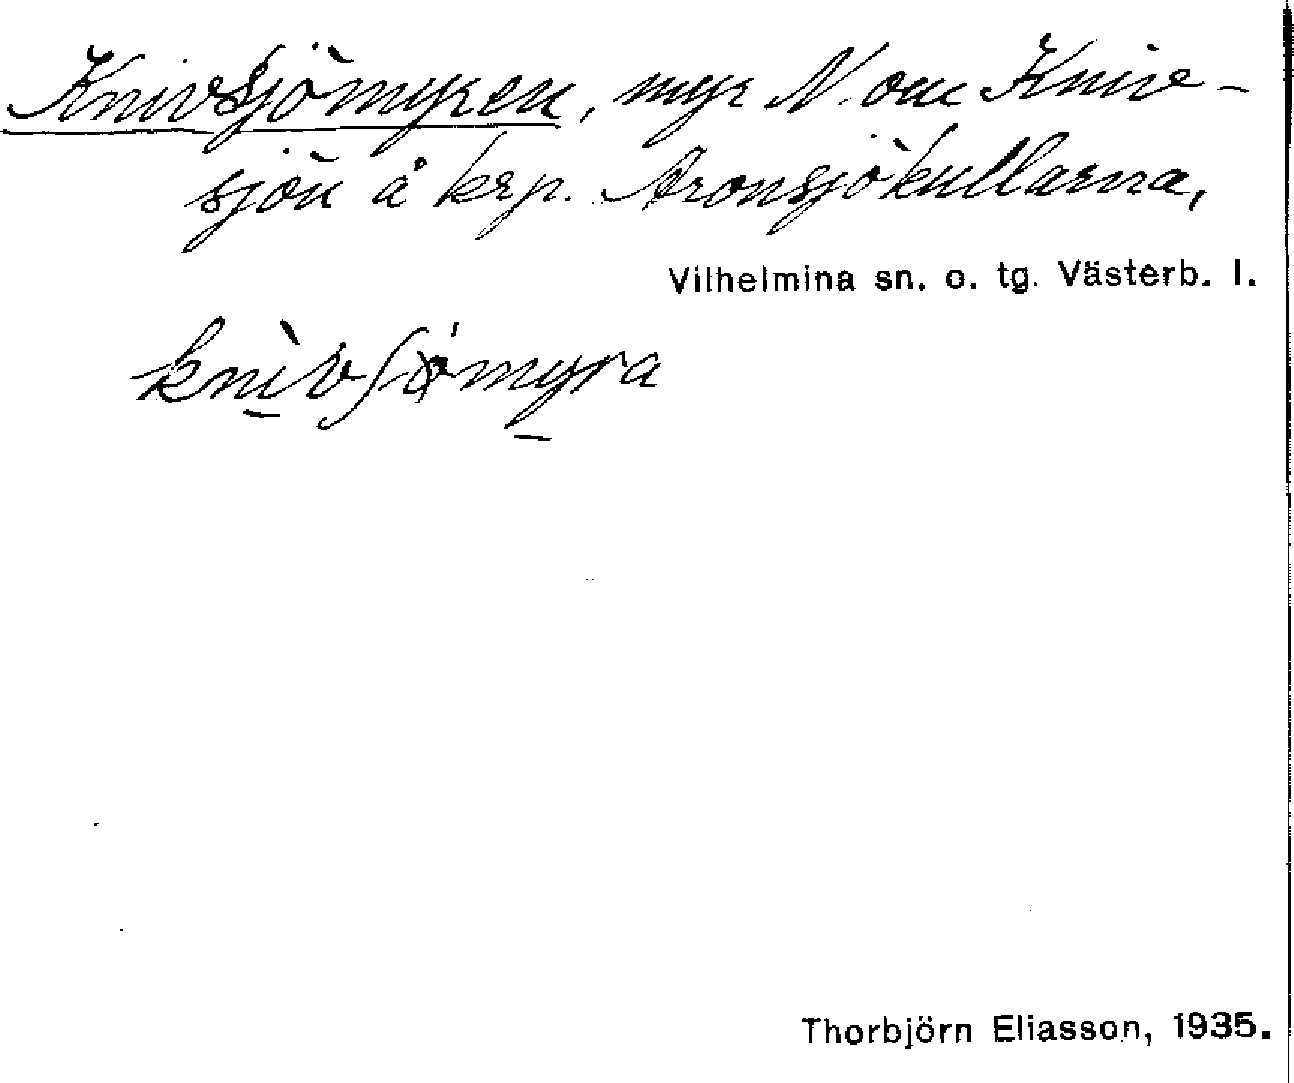 Knivsjömyren, myr N. om Kniv-
sjön å krp. Aronsjökullarna,
Vilhelmina sn. o. tg. Västerb. l.
knìvʃömyra
Thorbjörn Eliasson, 1935.